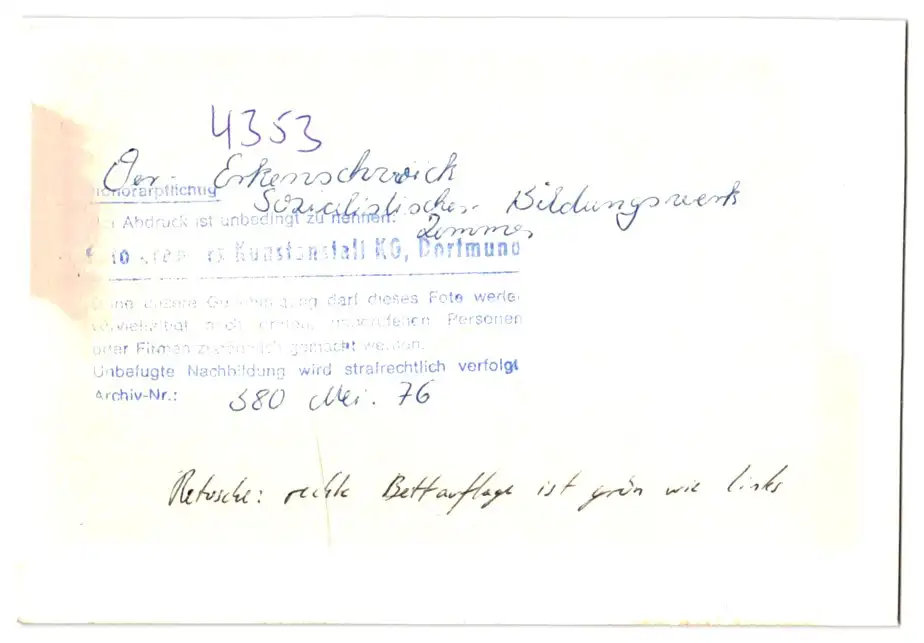 4353
Oer-Erkenschwick
Sozialistisches Bildungswerk
Zimmer
Honorarpflichtig
Bei Abdruck ist unbedingt zu nennen:
Kunstanstalt KG, Dortmund
Ohne unsere Genehmigung darf dieses Foto weder
vervielfältigt noch dritten, unberufenen Personen
oder Firmen zugänglich gemacht werden.
Unbefugte Nachbildung wird strafrechtlich verfolgt
Archiv-Nr.: 380 Mei. 76
Retusche: rechte Bettauflage ist grün wie links